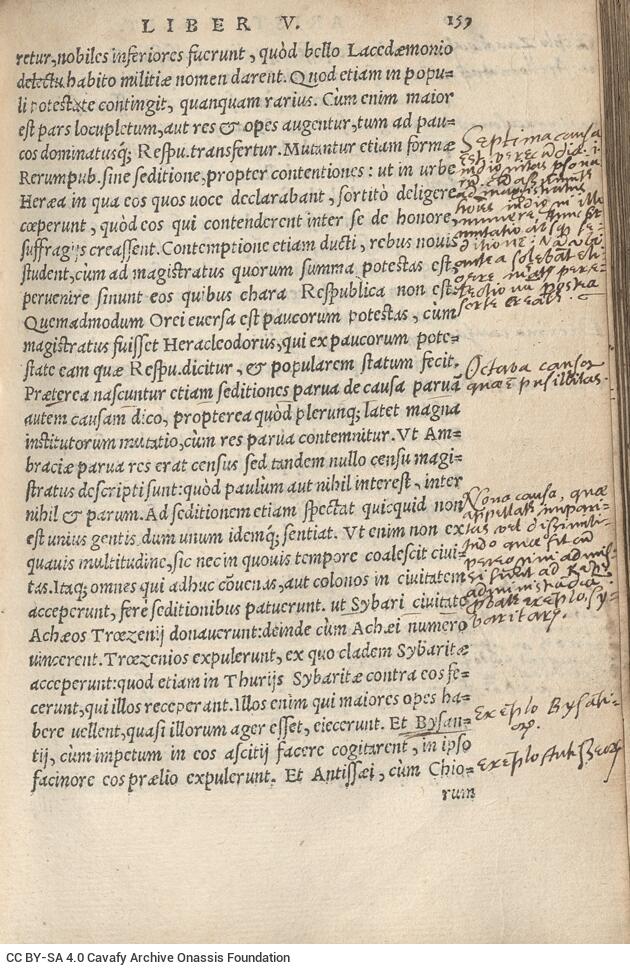 LIBER V. 159
retur, nobiles inferiores fuerunt, quòd bello Lacedæmonio
delectu habito militiæ nomen darent. Quod etiam in popu=
li potestate contingit, quanquam rarius. Cùm enim maior
est pars locupletum, aut res & opes augentur, tum ad pau=
cos dominatusq́; Respu. transfertur. Mutantur etiam formæ
Rerumpub. sine seditione, propter contentiones: ut in urbe
Heræa in qua eos quos uoce declarabant, sortitò deligere
cœperunt, quòd eos qui contenderent inter se de honore,
suffragijs creassent. Contemptione etiam ducti, rebus nouis
student, cùm ad magistratus quorum summa potestas est,
peruenire sinunt eos quibus chara Respublica non est.
Quemadmodum Orei euersa est paucorum potestas, cum
magistratus fuisset Heracleodorus, qui ex paucorum pote=
state eam quæ Respu. dicitur, & popularem statum fecit.
Præterea nascuntur etiam seditiones parua de causa paruā
autem causam dico, propterea quòd plerunq; latet magna
institutorum mutatio, cùm res parua contemnitur. Vt Am=
braciæ parua res erat census sed tandem nullo censu magi=
stratus descripti sunt: quòd paulum aut nihil interest, inter
nihil & parum. Ad seditionem etiam spectat quicquid non
est unius gentis, dum unum idemq; sentiat. Vt enim non ex
quauis multitudine, sic nec in quouis tempore coalescit ciui=
tas. Itaq; omnes qui adhuc cōuenas, aut colonos in ciuitatem
acceperunt, fere seditionibus patuerunt. ut Sybari ciuitatē
Achæos Trœzenij donauerunt: deinde cùm Achæi numero
uincerent. Trœzenios expulerunt, ex quo cladem Sybaritæ
acceperunt: quod etiam in Thurijs Sybaritæ contra eos fe=
cerunt, qui illos receperant. Illos enim qui maiores opes ha=
bere uellent, quasi illorum ager esset, eiecerunt. Et Bysan=
tij, cùm impetum in eos ascitij facere cogitarent, in ipso
facinore eos prælio expulerunt. Et Antissæi, cùm Chio=
rum
Septima causa
Octava causa
quae pusillitas.
Nona causa, quae
exēplo
exēplo
CC BY-SA 4.0 Cavafy Archive Onassis Foundation